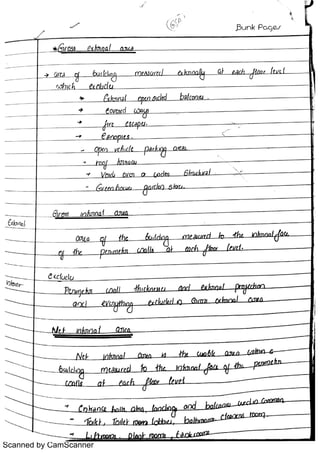 Bunk Pages
* Gross External area
→ area of building measured externally at each floor level
which exclude
* External open sided balconies
* covered ways
* fire escapes
→ Canopies
- open vehicle parking areas
- roof terraces
- Voids over or under Structural
- Green house garden store
Gross internal area
External
area of the building measured to the internal face
of the perimeter walls at each floor level.
exclude
Perimeter wall thickness and external projection
and everything excluded in Gross external area
Net internal area
Net internal area is the usable area within a
building measured to the internal face of the perimeter
walls at each floor level
Entrance halls, atria, landing and balconies used in common
Toilet, Toilet lobbies, bathrooms cleaners room
Lift room, plant room, tank room
Scanned by CamScanner